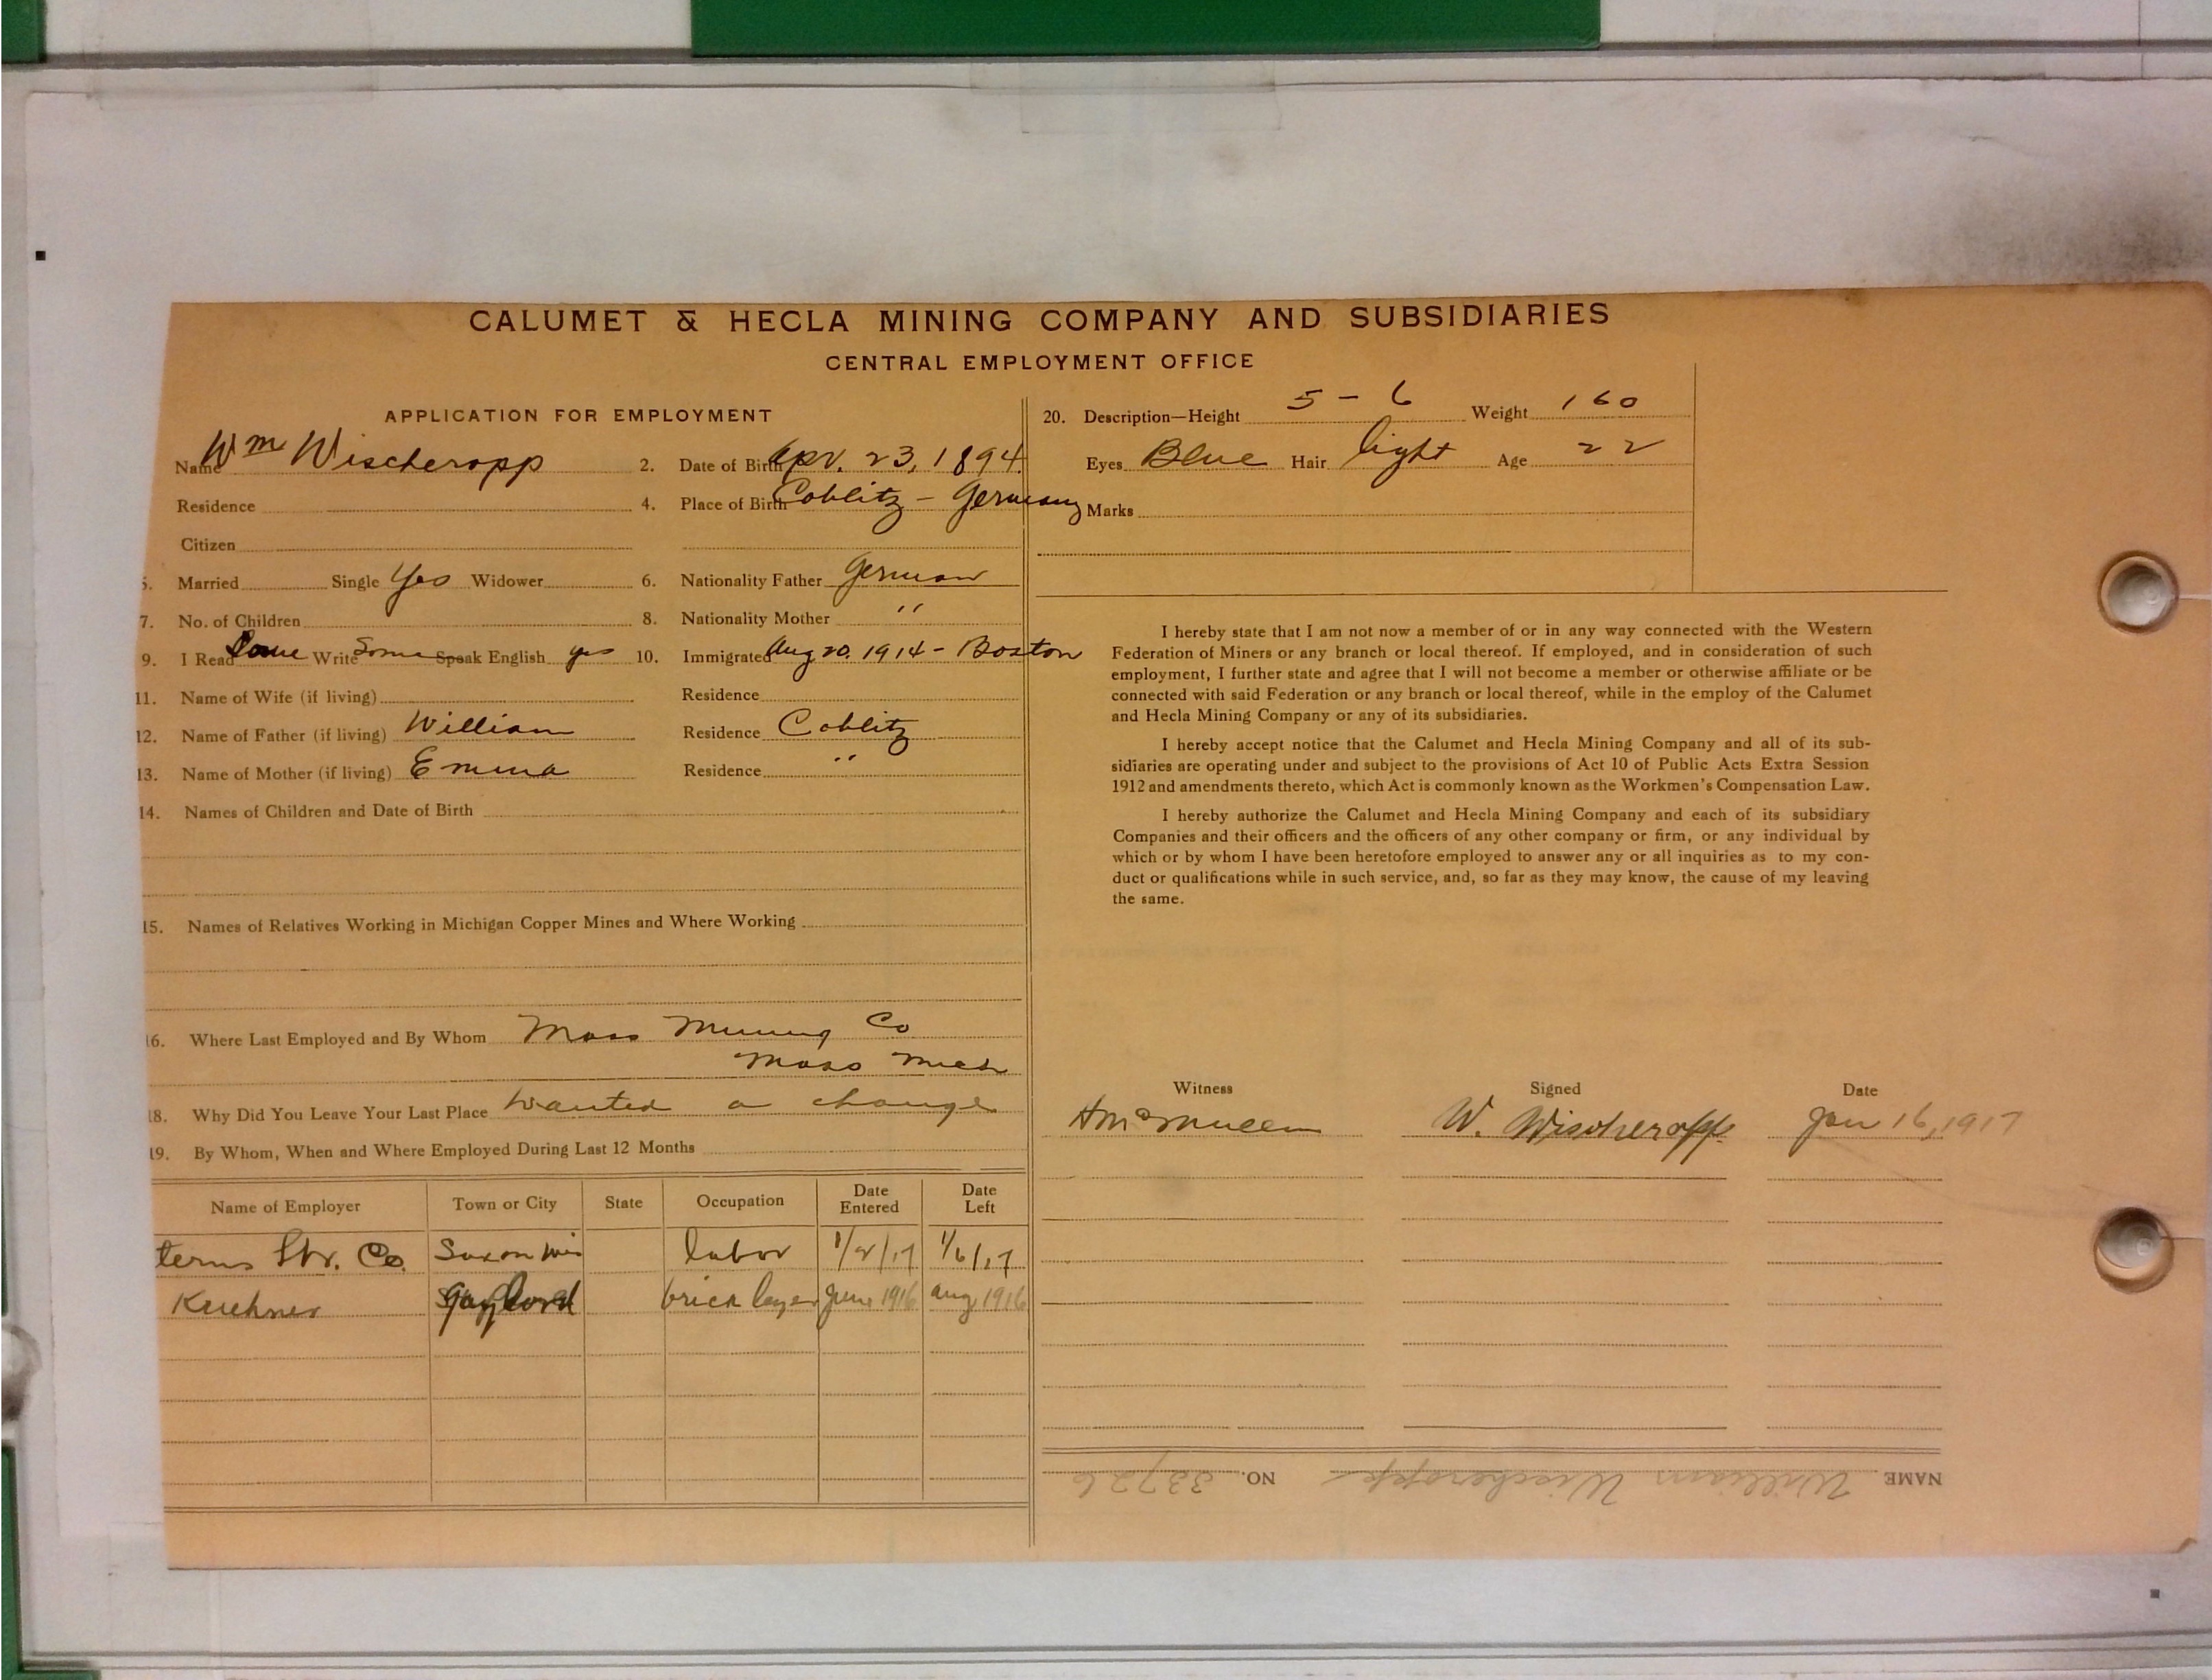 CALUMET & HECLA MINING COMPANY AND SUBSIDIARIES
CENTRAL EMPLOYMENT OFFICE
APPLICATION FOR EMPLOYMENT
Name Wm Wischeropp 2. Date of Birth Apr. 23, 1894
Residence 4. Place of Birth Coblitz - Germany
Citizen
5. Married Single Yes Widower 6. Nationality Father German
7. No. of Children 8. Nationality Mother "
9. I Read Some Write Some Speak English yes 10. Immigrated Aug 20, 1914 - Boston
11. Name of Wife (if living) Residence
12. Name of Father (if living) William Residence Coblitz
13. Name of Mother (if living) Emma Residence "
14. Names of Children and Date of Birth
15. Names of Relatives Working in Michigan Copper Mines and Where Working
16. Where Last Employed and By Whom Mass Mining Co
Mass Mich
18. Why Did You Leave Your Last Place Wanted a change
19. By Whom, When and Where Employed During Last 12 Months
Name of Employer Town or City State Occupation Date Entered Date Left
Co. Saxon Wis labor 1/2/17 1/6/17
Kuehner Gaylord brick layer June 1916 Aug 1916
20. Description—Height 5 - 6 Weight 160
Eyes Blue Hair light Age 22
Marks
I hereby state that I am not now a member of or in any way connected with the Western
Federation of Miners or any branch or local thereof. If employed, and in consideration of such
employment, I further state and agree that I will not become a member or otherwise affiliate or be
connected with said Federation or any branch or local thereof, while in the employ of the Calumet
and Hecla Mining Company or any of its subsidiaries.
I hereby accept notice that the Calumet and Hecla Mining Company and all of its sub-
sidiaries are operating under and subject to the provisions of Act 10 of Public Acts Extra Session
1912 and amendments thereto, which Act is commonly known as the Workmen's Compensation Law.
I hereby authorize the Calumet and Hecla Mining Company and each of its subsidiary
Companies and their officers and the officers of any other company or firm, or any individual by
which or by whom I have been heretofore employed to answer any or all inquiries as to my con-
duct or qualifications while in such service, and, so far as they may know, the cause of my leaving
the same.
Witness Signed Date
H McMullen W. Wischeropp Jan 16, 1917
NAME William Wischeropp NO. 33726